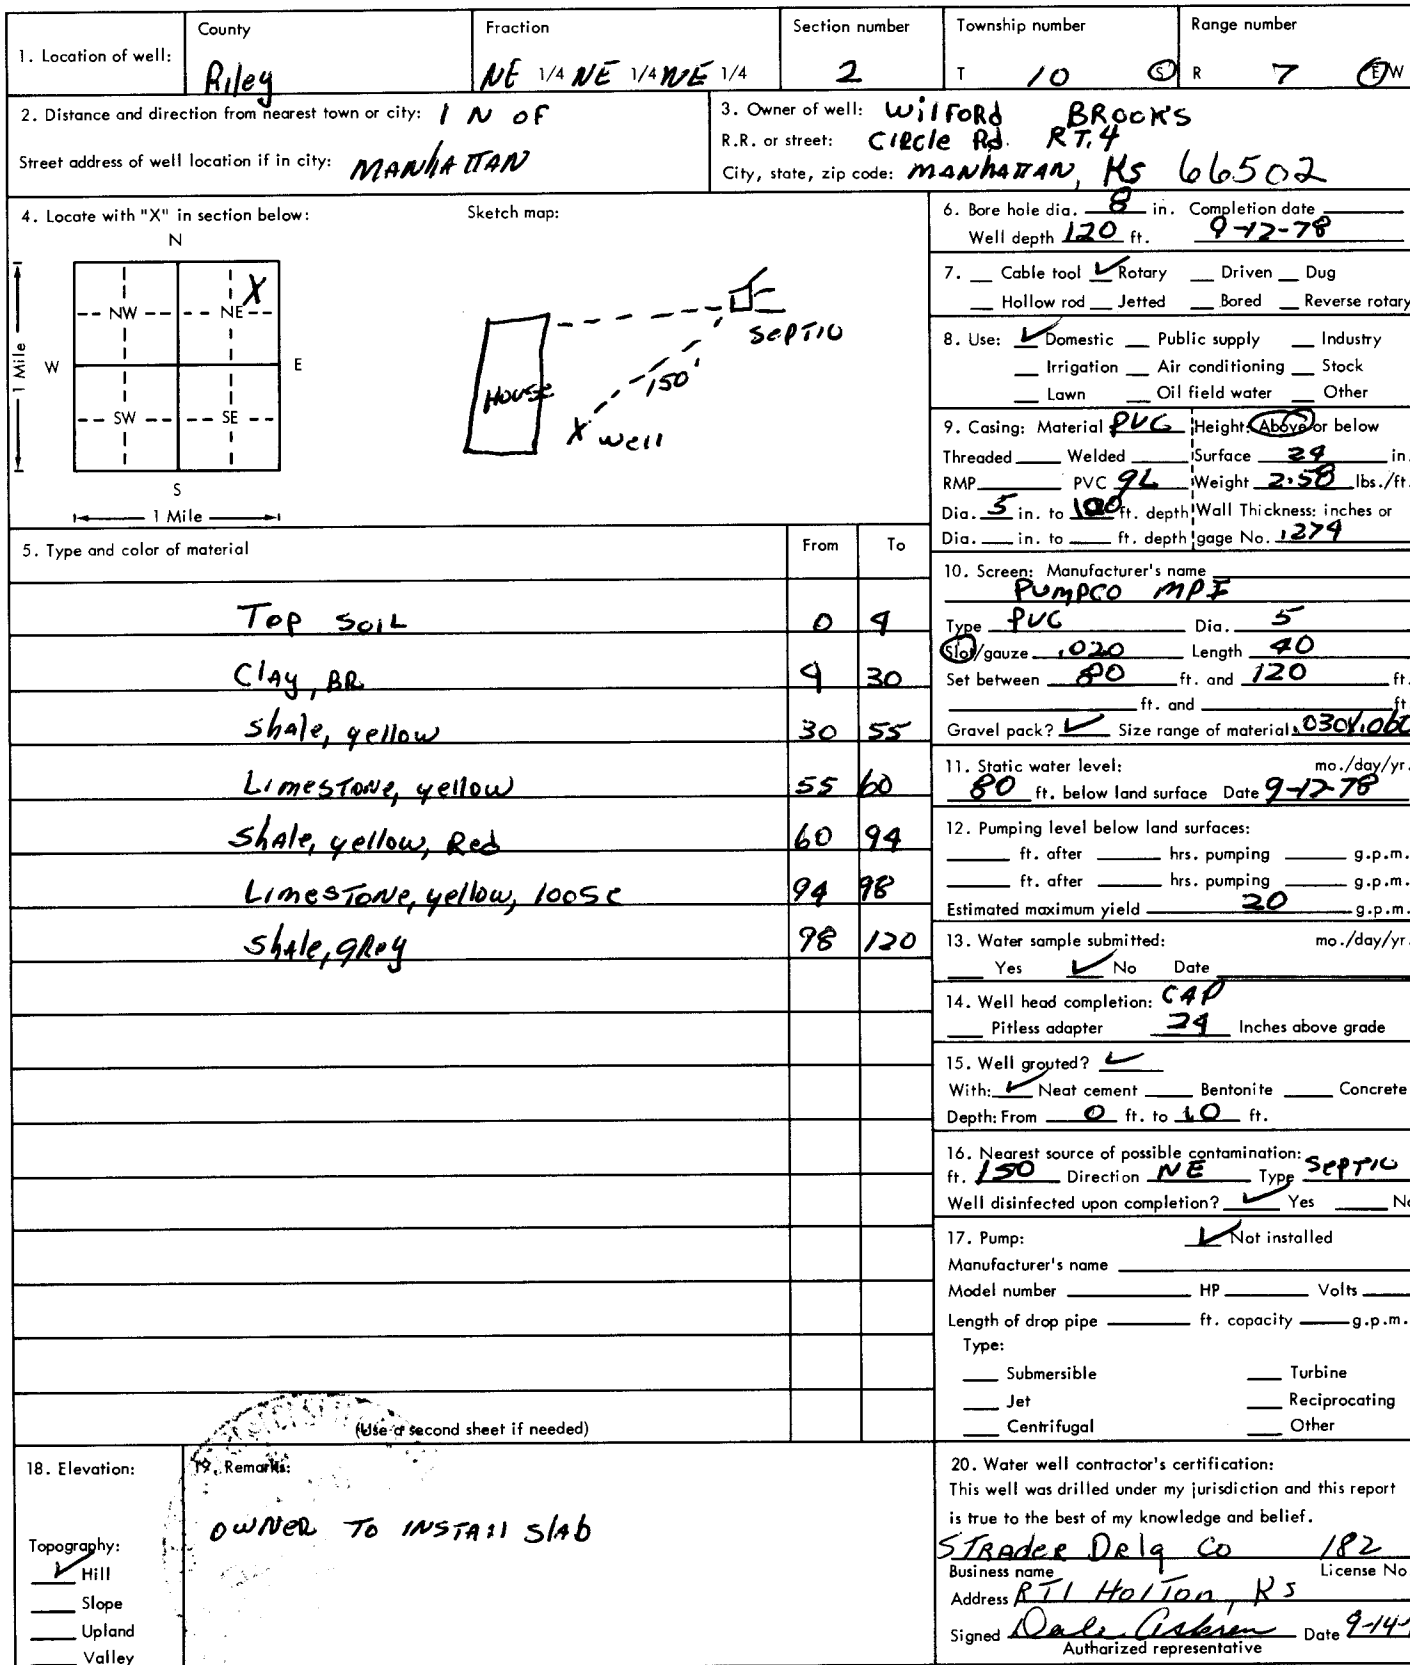 1. Location of well:
County
Riley
Fraction
NE 1/4 NE 1/4 NE 1/4
Section number
2
Township number
T 10 S
Range number
R 7 E/W
2. Distance and direction from nearest town or city: 1 N OF
Street address of well location if in city: MANHATTAN
3. Owner of well: WilFORd BROOKS
R.R. or street: CIRCle Rd. RT.4
City, state, zip code: MANHATTAN, Ks 66502
4. Locate with "X" in section below:
N
NW NE
X
W E
SW SE
S
1 Mile
1 Mile
Sketch map:
HOUSE
SEPTIC
150'
X well
5. Type and color of material From To
TOP SOIL 0 4
ClAy, BR 4 30
Shale, yellow 30 55
LimesTONe, yellow 55 60
ShAle, yellow, Red 60 94
LimesTONe, yellow, loose 94 98
ShAle, gRey 98 120
(Use a second sheet if needed)
6. Bore hole dia. 8 in. Completion date
Well depth 120 ft. 9-12-78
7. Cable tool ✓ Rotary Driven Dug
Hollow rod Jetted Bored Reverse rotary
8. Use: ✓ Domestic Public supply Industry
Irrigation Air conditioning Stock
Lawn Oil field water Other
9. Casing: Material PVC Height: Above or below
Threaded Welded Surface 24 in.
RMP PVC GL Weight 2.58 lbs./ft.
Dia. 5 in. to 100 ft. depth Wall Thickness: inches or
Dia. in. to ft. depth gage No. .274
10. Screen: Manufacturer's name
PUMPCO MPI
Type PVC Dia. 5
Slot/gauze .020 Length 40
Set between 80 ft. and 120 ft.
ft. and ft
Gravel pack? ✓ Size range of material .030
11. Static water level: mo./day/yr.
80 ft. below land surface Date 9-12-78
12. Pumping level below land surfaces:
ft. after hrs. pumping g.p.m.
ft. after hrs. pumping g.p.m.
Estimated maximum yield 20 g.p.m.
13. Water sample submitted: mo./day/yr.
Yes ✓ No Date
14. Well head completion: CAP
Pitless adapter 24 Inches above grade
15. Well grouted? ✓
With: ✓ Neat cement Bentonite Concrete
Depth: From 0 ft. to 10 ft.
16. Nearest source of possible contamination:
ft. 150 Direction NE Type SEPTIC
Well disinfected upon completion? ✓ Yes No
17. Pump: ✓ Not installed
Manufacturer's name
Model number HP Volts
Length of drop pipe ft. capacity g.p.m.
Type:
Submersible Turbine
Jet Reciprocating
Centrifugal Other
18. Elevation:
Topography:
✓ Hill
Slope
Upland
Valley
19. Remarks:
OWNER TO INSTAll SlAb
20. Water well contractor's certification:
This well was drilled under my jurisdiction and this report
is true to the best of my knowledge and belief.
STRAdeR DRlg Co 182
Business name License No
Address RT1 HolTon, Ks
Signed Dale Askren Date 9-14-
Autharized representative